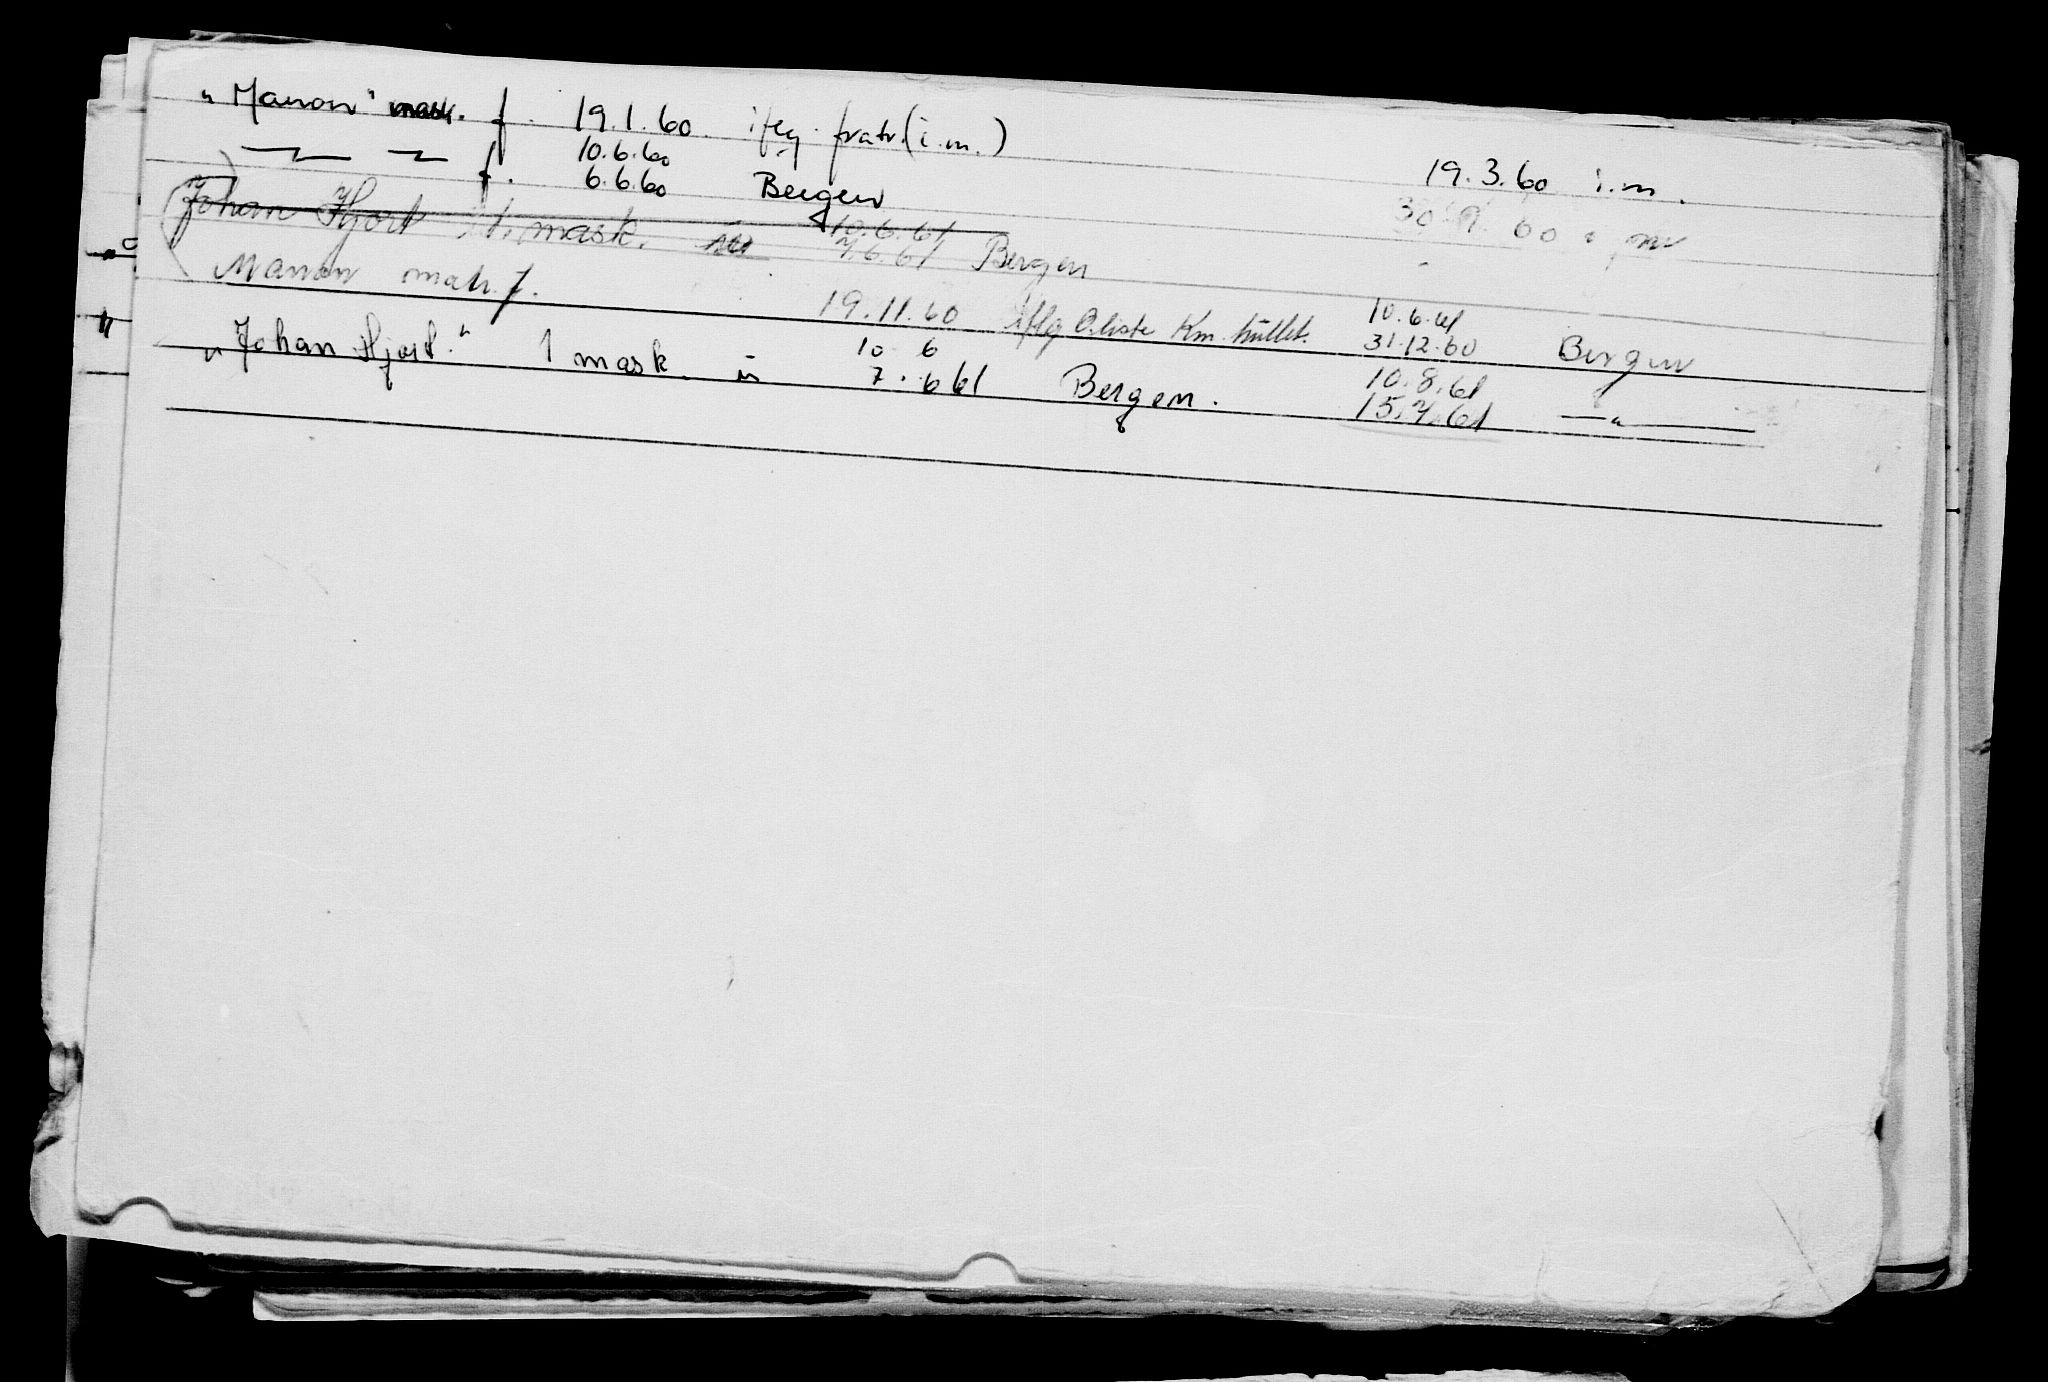 "Manon" mask. f. 19.1.60. ifølg. fratr. (i.m.) 19.3.60 i.m.
—"— —"— f. 10.6.60 6.6.60 Bergen 30 9. 60 i m
Johan Hjort 1. mask. 10.6.61 7.6.61 Bergen
Manon matr. f. 19.11.60 iflg O.liste 10.6.61 31.12.60 Bergen
"Johan Hjort." 1 mask. 10 6 7.6 61 Bergen. 10.8.61 15.7.61 —"—